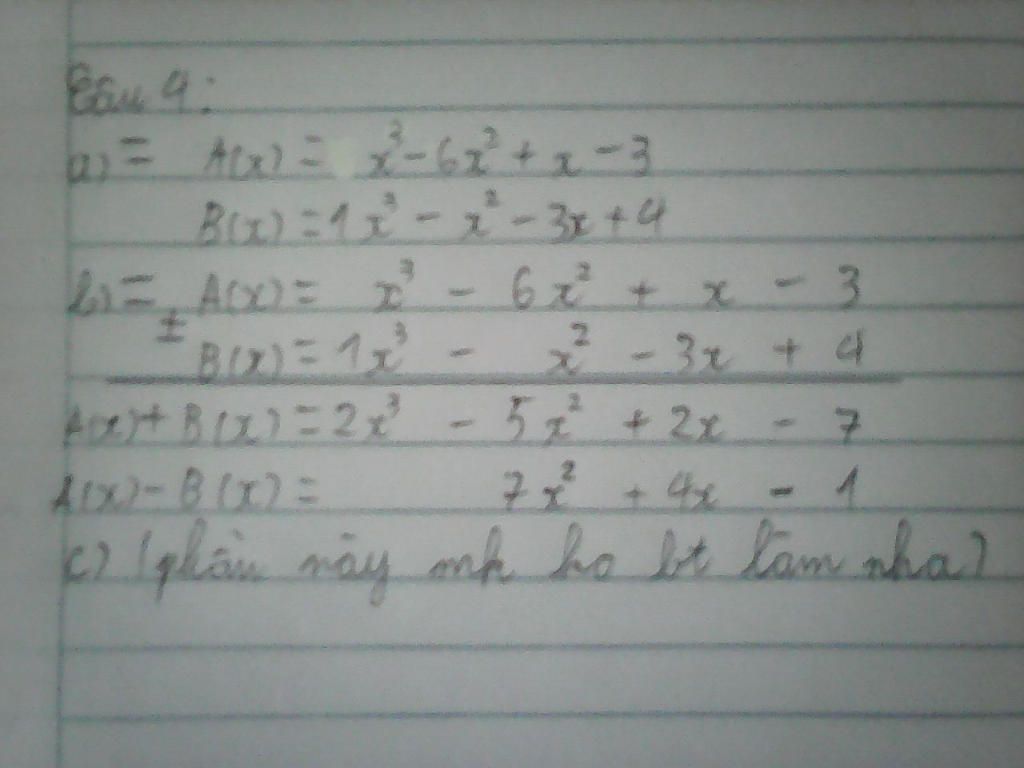 Câu 4:
a) = A(x) = x³ - 6x² + x - 3
B(x) = 1x³ - x² - 3x + 4
b) = A(x) = x³ - 6x² + x - 3
±
B(x) = 1x³ - x² - 3x + 4
A(x) + B(x) = 2x³ - 5x² + 2x - 7
A(x) - B(x) = 7x² + 4x - 1
c) (phần này mk ko bt làm nha)